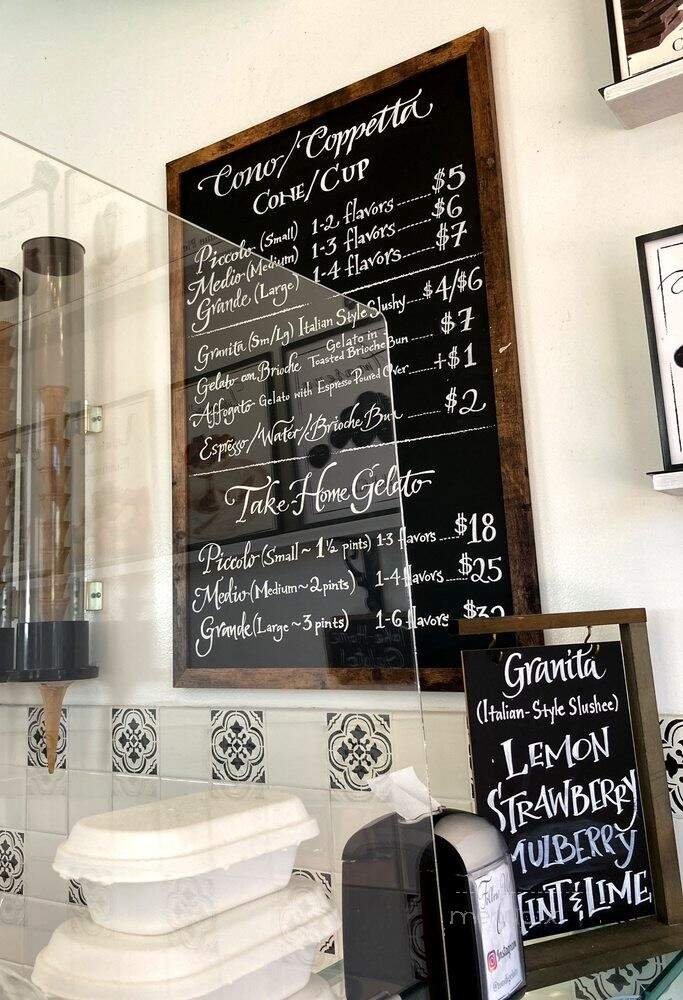 Cono/Coppetta
CONE/CUP
Piccolo (Small) 1-2 flavors ------- $5
Medio (Medium) 1-3 flavors ------- $6
Grande (Large) 1-4 flavors ------- $7
Granita (Sm/Lg) Italian Style Slushy ---- $4/$6
Gelato con Brioche Gelato in Toasted Brioche Bun ------- $7
Affogato - Gelato with Espresso Poured Over ------ +$1
Espresso/Water/Brioche Bun ------ $2
Take-Home Gelato
Piccolo (Small ~ 1½ pints) 1-3 flavors ---- $18
Medio (Medium ~ 2 pints) 1-4 flavors ---- $25
Grande (Large ~ 3 pints) 1-6 flavors
Granita
(Italian-Style Slushee)
LEMON
STRAWBERRY
MULBERRY
MINT & LIME
Follow
Instagram